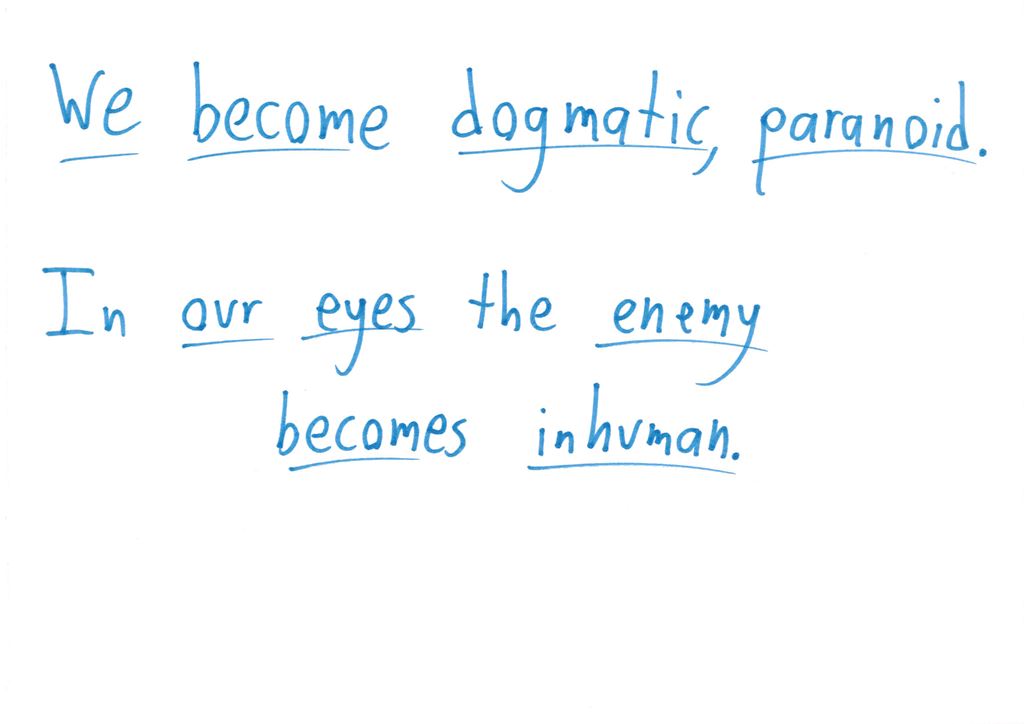 We become dogmatic, paranoid.
In our eyes the enemy
becomes inhuman.